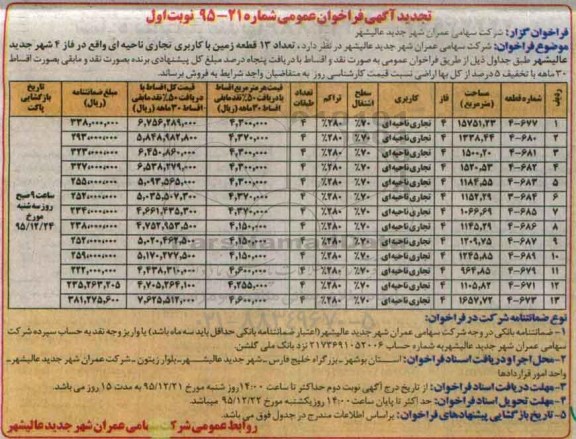 تجدید آگهی فراخوان عمومی شماره ۲۱-۹۵ نوبت اول
فراخوان گزار: شرکت سهامی عمران شهر جدید عالیشهر
موضوع فراخوان: شرکت سهامی عمران شهر جدید عالیشهر در نظر دارد، تعداد ۱۳ قطعه زمین با کاربری تجاری ناحیه ای واقع در فاز ۴ شهر جدید
عالیشهر طبق جداول ذیل از طریق فراخوان عمومی به صورت نقد و اقساط با دریافت پنجاه درصد مبلغ کل پیشنهادی برنده بصورت نقد و مابقی بصورت اقساط
۳۰ ماهه با تخفیف ۵ درصد از کل بها اراضی نسبت قیمت کارشناسی روز به متقاضیان واجد شرایط به فروش برساند.
ردیف شماره قطعه مساحت (مترمربع) فاز کاربری سطح اشتغال تراکم تعداد طبقات قیمت هر مترمربع اقساط با دریافت ۵۰٪ نقد مابقی اقساط ۳۰ ماهه (ریال) قیمت کل اقساط با دریافت ۵۰٪ نقد مابقی اقساط ۳۰ ماهه (ریال) مبلغ ضمانتنامه (ریال) تاریخ بازگشایی پاکت
۱ ۶۷۷-۴ ۱۵۷۱,۲۳ ۴ تجاری ناحیه ای ٪۷۰ ٪۲۸۰ ۴ ۴,۳۰۰,۰۰۰ ۶,۷۵۶,۲۸۹,۰۰۰ ۳۳۸,۰۰۰,۰۰۰
۲ ۶۸۰-۴ ۱۳۳۸,۴۴ ۴ تجاری ناحیه ای ٪۷۰ ٪۲۸۰ ۴ ۴,۳۷۰,۰۰۰ ۵,۸۴۸,۹۸۲,۸۰۰ ۲۹۳,۰۰۰,۰۰۰
۳ ۶۸۱-۴ ۱۵۰۰,۲۰ ۴ تجاری ناحیه ای ٪۷۰ ٪۲۸۰ ۴ ۴,۳۰۰,۰۰۰ ۶,۴۵۰,۸۶۰,۰۰۰ ۳۲۳,۰۰۰,۰۰۰
۴ ۶۸۲-۴ ۱۵۲۰,۵۳ ۴ تجاری ناحیه ای ٪۷۰ ٪۲۸۰ ۴ ۴,۳۰۰,۰۰۰ ۶,۵۳۸,۲۷۹,۰۰۰ ۳۲۷,۰۰۰,۰۰۰
۵ ۶۸۳-۴ ۱۱۸۴,۵۵ ۴ تجاری ناحیه ای ٪۷۰ ٪۲۸۰ ۴ ۴,۳۰۰,۰۰۰ ۵,۰۹۳,۵۶۵,۰۰۰ ۲۵۵,۰۰۰,۰۰۰
۶ ۶۸۴-۳ ۱۱۵۲,۲۹ ۴ تجاری ناحیه ای ٪۷۰ ٪۲۸۰ ۴ ۴,۳۷۰,۰۰۰ ۵,۰۳۵,۵۰۷,۳۰۰ ۲۵۲,۰۰۰,۰۰۰
۷ ۶۸۵-۴ ۱۰۶۶,۶۹ ۴ تجاری ناحیه ای ٪۷۰ ٪۲۸۰ ۴ ۴,۳۷۰,۰۰۰ ۴,۶۶۱,۴۳۵,۳۰۰ ۲۳۴,۰۰۰,۰۰۰
۸ ۶۸۶-۴ ۱۱۴۵,۲۹ ۴ تجاری ناحیه ای ٪۷۰ ٪۲۸۰ ۴ ۴,۱۵۰,۰۰۰ ۴,۷۵۲,۹۵۳,۵۰۰ ۲۳۸,۰۰۰,۰۰۰
۹ ۶۸۷-۴ ۱۲۰۹,۷۵ ۴ تجاری ناحیه ای ٪۷۰ ٪۲۸۰ ۴ ۴,۱۵۰,۰۰۰ ۵,۰۲۰,۴۶۲,۵۰۰ ۲۵۲,۰۰۰,۰۰۰
۱۰ ۶۸۹-۴ ۱۲۴۵,۸۵ ۴ تجاری ناحیه ای ٪۷۰ ٪۲۸۰ ۴ ۴,۱۵۰,۰۰۰ ۵,۱۷۰,۲۷۷,۵۰۰ ۲۵۹,۰۰۰,۰۰۰
۱۱ ۶۷۹-۴ ۹۶۴,۸۵ ۴ تجاری ناحیه ای ٪۷۰ ٪۲۸۰ ۴ ۴,۶۰۰,۰۰۰ ۴,۴۳۸,۳۱۰,۰۰۰ ۲۲۲,۰۰۰,۰۰۰
۱۲ ۶۷۱-۴ ۱۱۰۵,۸۲ ۴ تجاری ناحیه ای ٪۷۰ ٪۲۸۰ ۴ ۴,۲۵۵,۰۰۰ ۴,۷۰۵,۲۶۴,۱۰۰ ۲۳۵,۲۶۳,۲۰۵
۱۳ ۶۷۳-۴ ۱۶۵۷,۷۲ ۴ تجاری ناحیه ای ٪۷۰ ٪۲۸۰ ۴ ۴,۶۰۰,۰۰۰ ۷,۶۲۵,۵۱۲,۰۰۰ ۳۸۱,۲۷۵,۶۰۰
ساعت ۹ صبح
روز سه شنبه
مورخ
۹۵/۱۲/۲۴
نوع ضمانتنامه شرکت در فراخوان:
۱- ضمانتنامه بانکی در وجه شرکت سهامی عمران شهر جدید عالیشهر (اعتبار ضمانتنامه بانکی حداقل باید سه ماه باشد) یا واریز وجه نقد به حساب سپرده شرکت
سهامی عمران شهر جدید عالیشهر به شماره حساب ۲۱۷۳۶۹۱۰۵۲۰۰۶ نزد بانک ملی گلشن.
۲- محل اجرا و دریافت اسناد فراخوان: استان بوشهر_بزرگراه خلیج فارس_شهر جدید عالیشهر_بلوار زیتون_شرکت عمران شهر جدید عالیشهر_
واحد امور قراردادها
۳- مهلت دریافت اسناد فراخوان: از تاریخ درج آگهی نوبت دوم حداکثر تا ساعت ۱۴:۰۰ روز شنبه مورخ ۹۵/۱۲/۲۱ به مدت ۱۵ روز می باشد.
۴- مهلت تحویل اسناد فراخوان: حداکثر تا پایان ساعت ۱۴:۰۰ روز یکشنبه مورخ ۹۵/۱۲/۲۲ میباشد.
۵- تاریخ بازگشایی پیشنهادهای فراخوان: براساس اطلاعات مندرج در جدول فوق می باشد.
روابط عمومی شرکت سهامی عمران شهر جدید عالیشهر